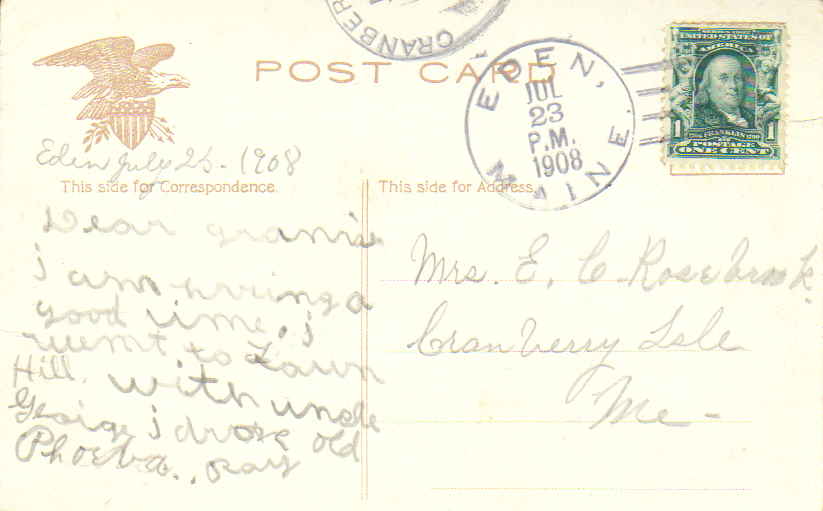 CRANBER
POST CARD
EDEN, MAINE.
JUL
23
P.M.
1908
SERIES 1902
UNITED STATES OF
AMERICA
FRANKLIN
1 POSTAGE 1
ONE CENT
Eden July 23 - 1908
This side for Correspondence.
This side for Address.
Dear granie
i am hving a
good time, i
wemt to Town
Hill. with uncle
George i drove old
Phoeba.. ray
Mrs. E. C. Rosebrook.
Cranberry Isle
Me -